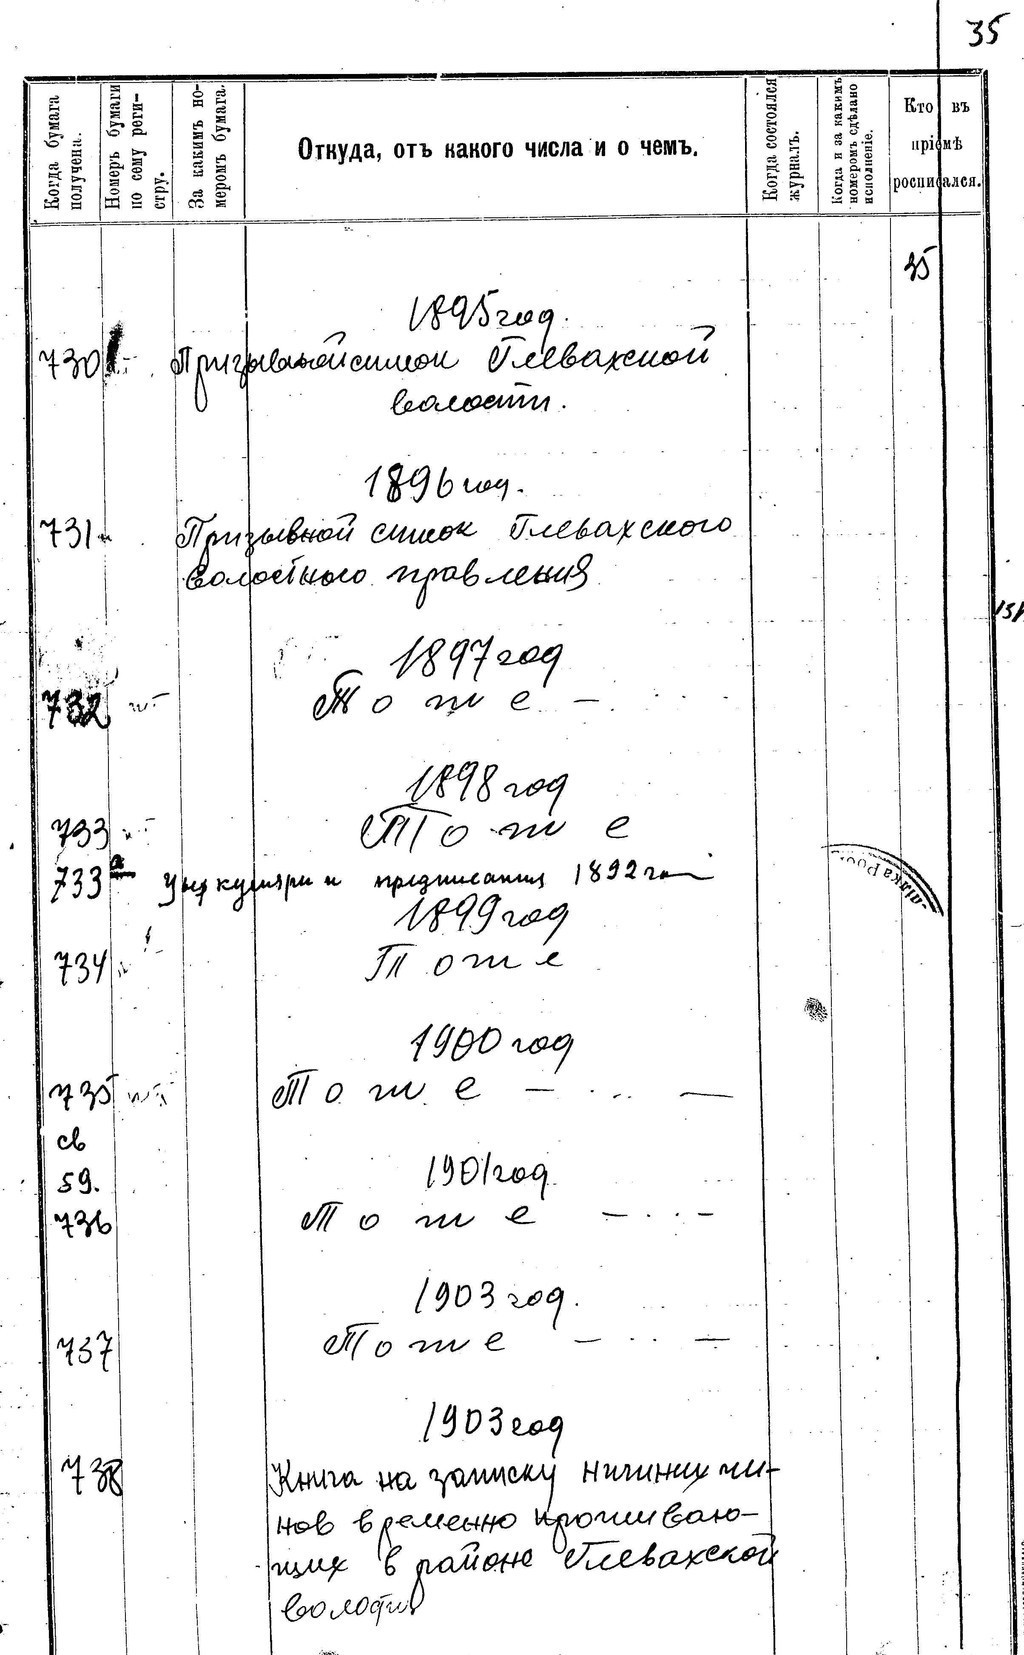 35
Когда бумага получена.
Номеръ бумаги по сему реги-стру.
За какимъ но-меромъ бумага.
Откуда, отъ какого числа и о чемъ.
Когда состоялся журналъ.
Когда и за какимъ номеромъ сдѣлано исполненіе.
Кто въ
пріемѣ
росписался.
35
1895 год.
730 Призывной список Глевахской
волости.
1896 год.
731 Призывной список Глевахского
волостного правления
1897 год
732 Тоже —
1898 год
733 Тоже
733а Циркуляри и предписания 1892 го
1899 год
734 Тоже
1900 год
735 Тоже — —
св
59.
1901 год
736 Тоже — —
1903 год.
737 Тоже — —
1903 год
738 Книга на записку нижних чи-
нов временно проживаю-
щих в районе Глевахской
волости